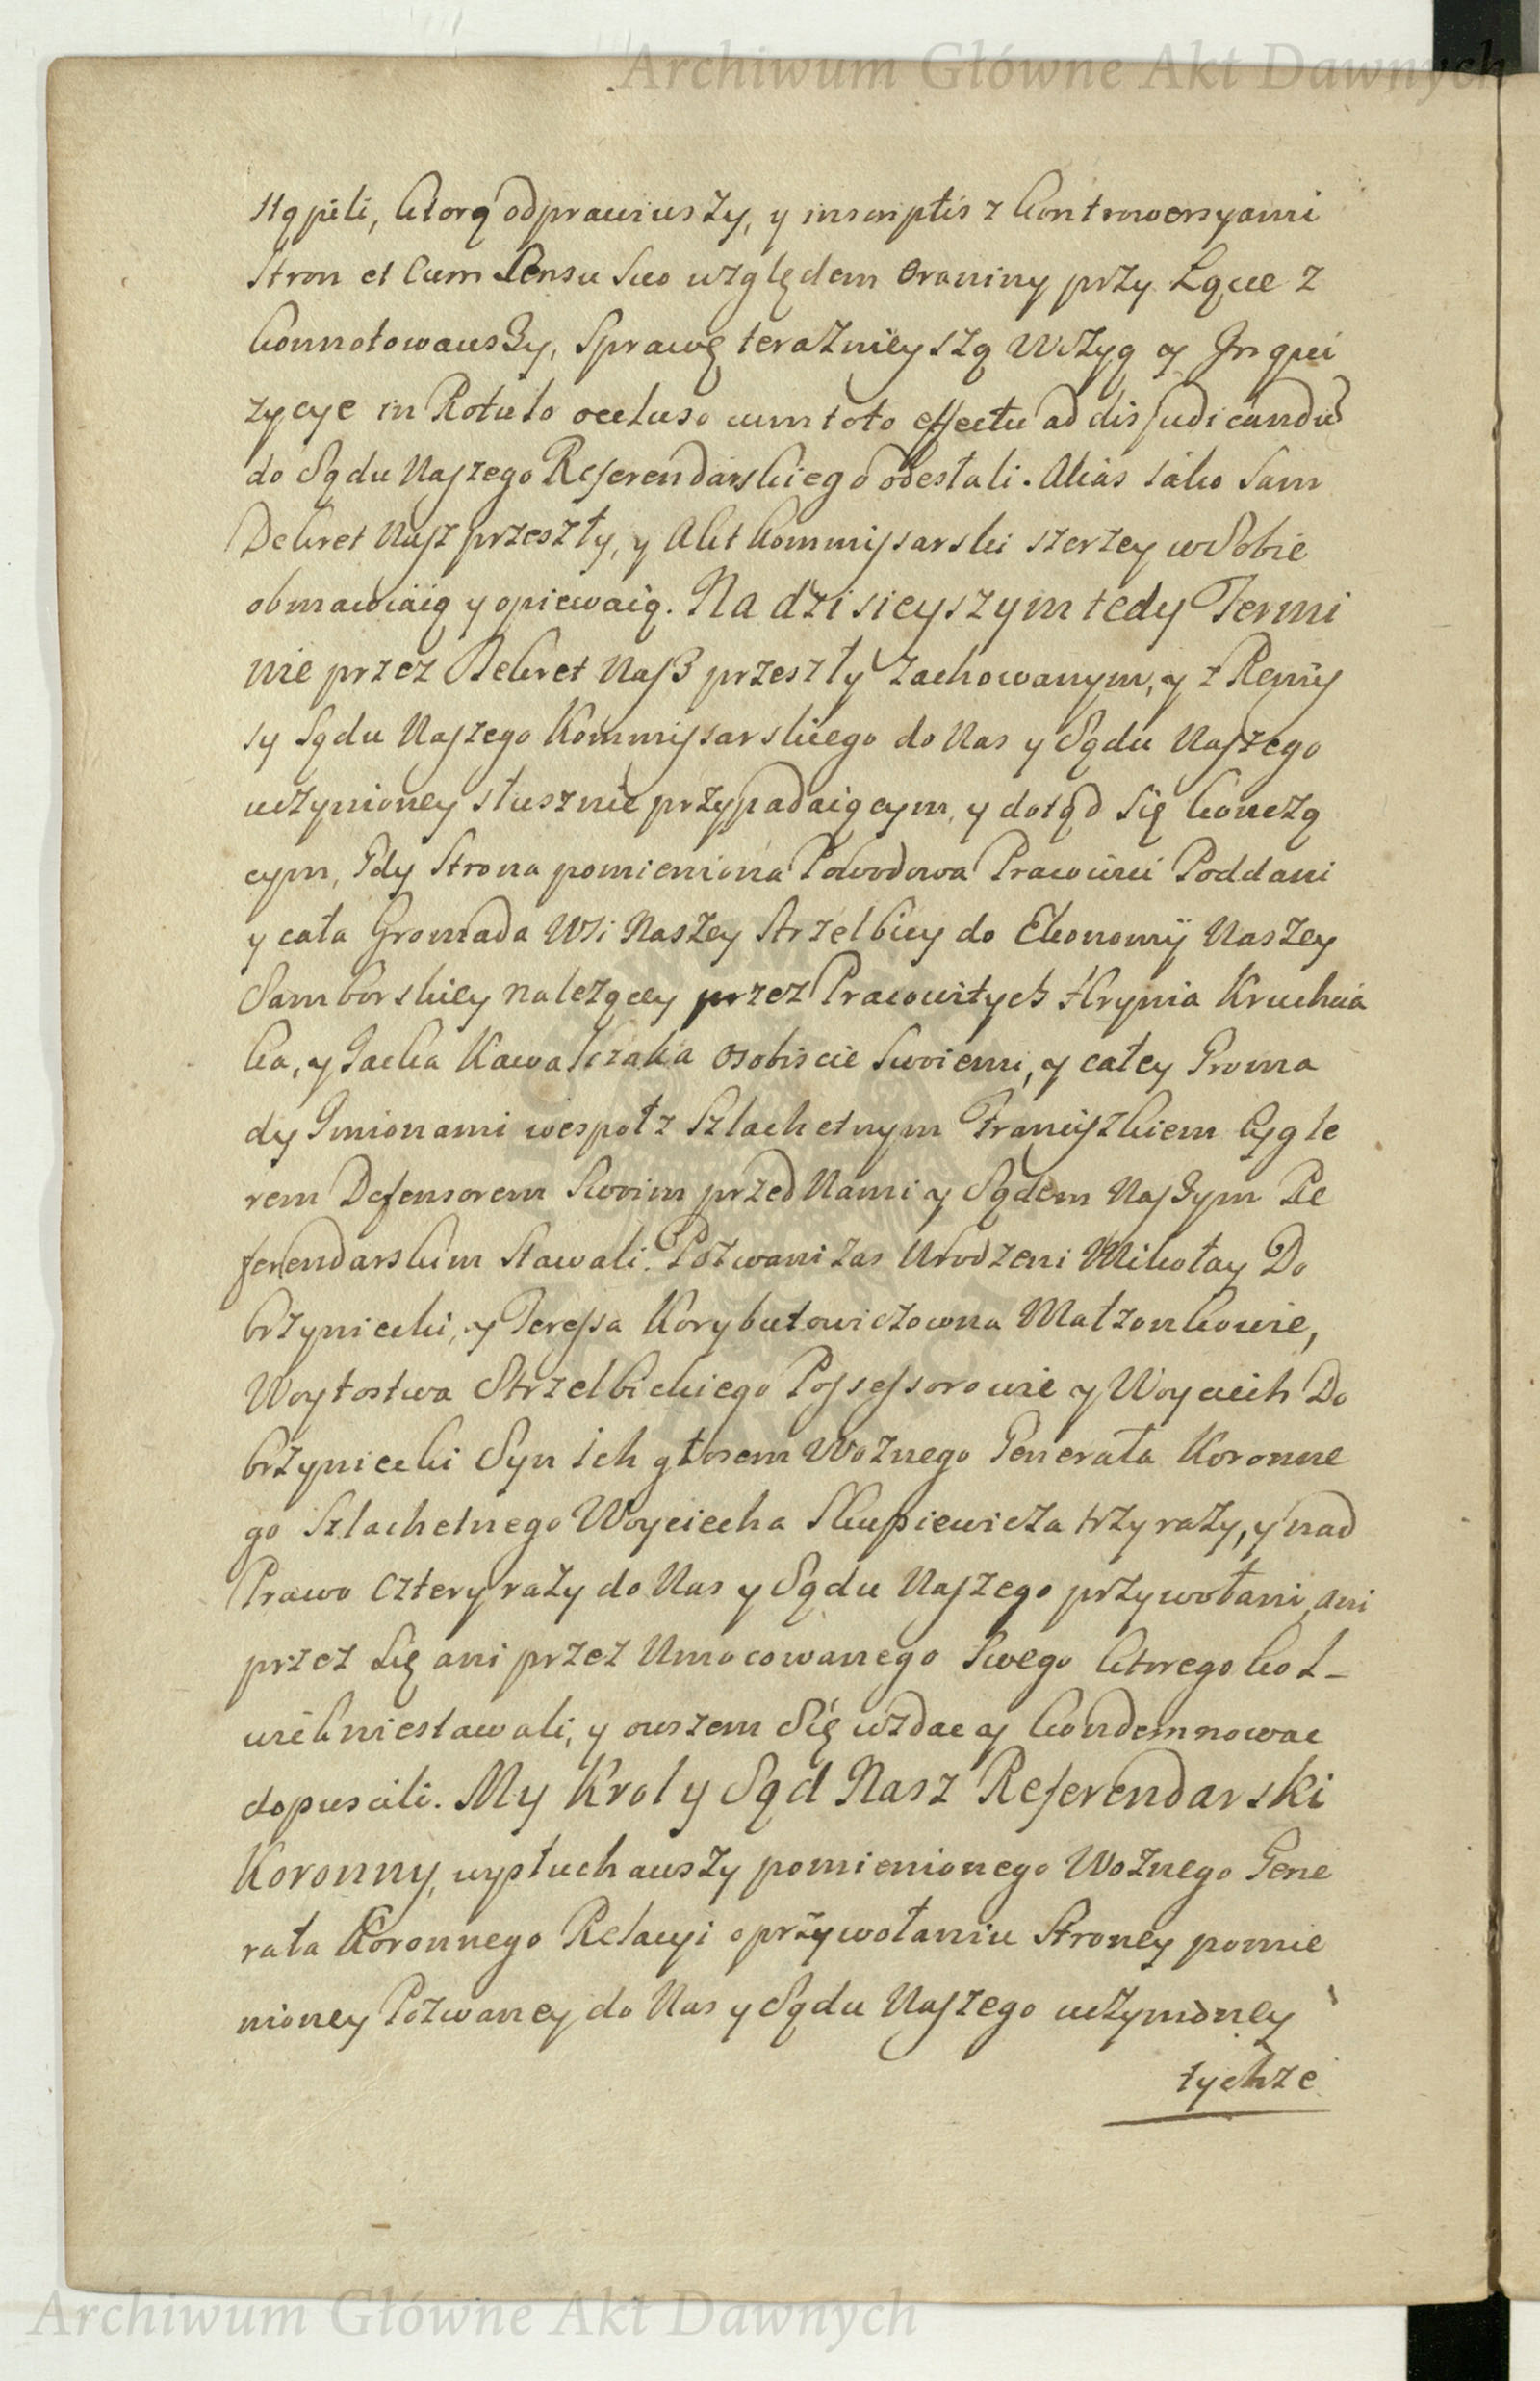 Archiwum Główne Akt Dawnych
stąpili, ktorą odprawiwszy, y in scriptis z kontrowersyami
Stron et Cum Sensu Suo względem Oraniny przy Łące z
konnotowawszy, Sprawę teraznieyszą Wszyą y Inqui
zycye in Rotulo occluso cum toto effectu ad disjudicandū
do Sądu Naszego Referendarskiego odesłali. Alias iako Sam
Dekret Nasz przeszły, y Akt Kommissarski szerzey w Sobie
obmawiaią y opiewaią. Na dzisieyszym tedy Termi
nie przez Dekret Nasz przeszły zachowanym, y z Remis
sy Sądu Naszego Kommissarskiego do Nas y Sądu Naszego
uczynioney słusznie przypadaiącym, y dotąd się konczą
cym, Gdy Strona pomieniona Powodowa Pracowici Poddani
y cała Gromada Wsi Naszey Strzelbicy do Ekonomij Naszey
Samborskiey nalezącey przez Pracowitych Hrynia Kruchcia
ka, y Jacka Kawalczaka osobiscie Swoiemi, y całey Groma
dy Imionami wespoł z Szlachetnym Franciszkiem Cygle
rem Defensorem Swoim przed Nami y Sądem Naszym Re
ferendarskim Stawali. Pozwani zas Urodzeni Mikołay Do
brzyniecki, y Teressa Korybutowiczowna Małzonkowie,
Woytostwa Strzelbickiego Possessorowie y Woyciech Do
brzyniecki Syn ich głosem Woznego Generała Koronne
go Szlachetnego Woyciecha Skupiewicza trzy razy, y nad
Prawo cztery razy do Nas y Sądu Naszego przywołani, ani
przez Się ani przez Umocowanego Swego ktorego kol-
wiek niestawali, y owszem Się wzdac y kondemnowac
dopuscili. My Krol y Sąd Nasz Referendarski
Koronny, wysłuchawszy pomienionego Woznego Gene
rała Koronnego Relacyi o przywołaniu Stroney pomie
nioney Pozwaney do Nas y Sądu Naszego uczynioney
tychze
Archiwum Główne Akt Dawnych